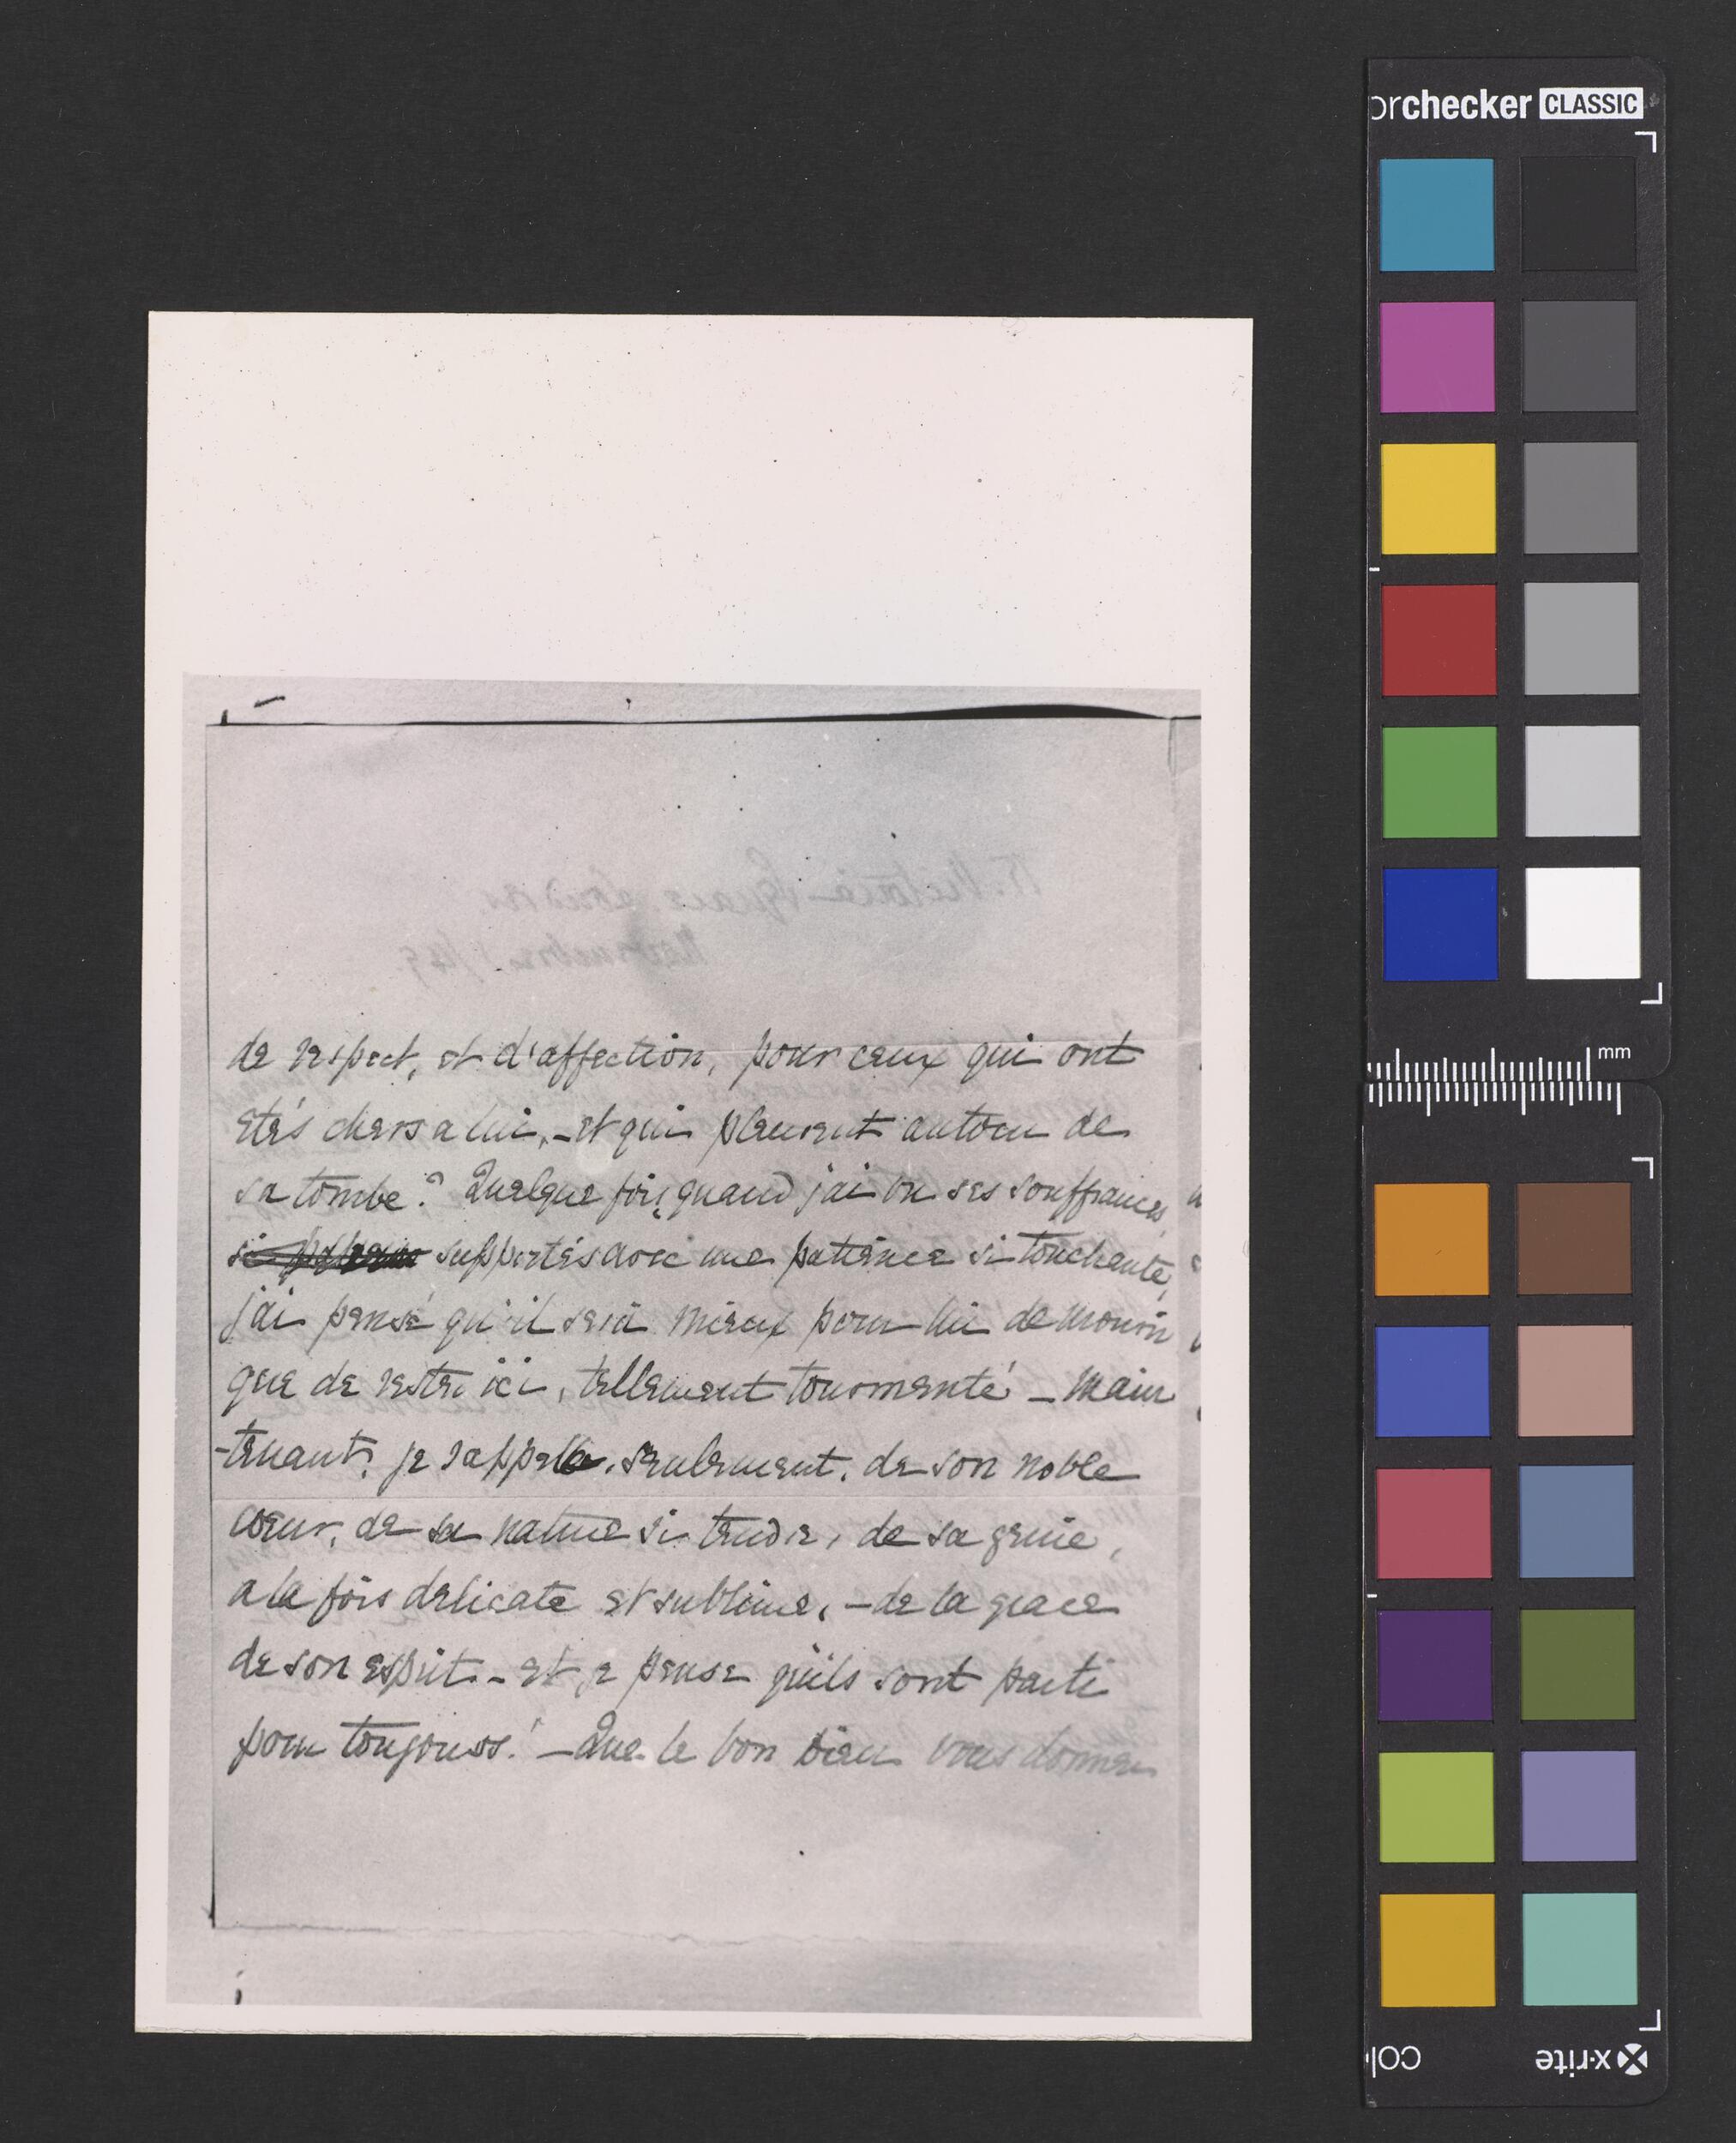 orchecker CLASSIC
de respect, et d'affection, pour ceux qui ont
etés chers a lui, – et qui pleurent autour de
sa tombe? Quelque fois, quand j'ai vu ses souffrances,
si supportés avec une patience si touchante,
j'ai pensé qu'il serai mieux pour lui de mourir
que de rester ici, tellement tourmenté – Main
-tenant, je rappelle, seulement, de son noble
cœur, de sa nature si tendre, de sa genie,
a la fois delicate et sublime, – de la grace
de son esprit. – et je pense qu'ils sont parti
pour toujours! – Que le bon Dieu vous donner
mm
x-rite
col